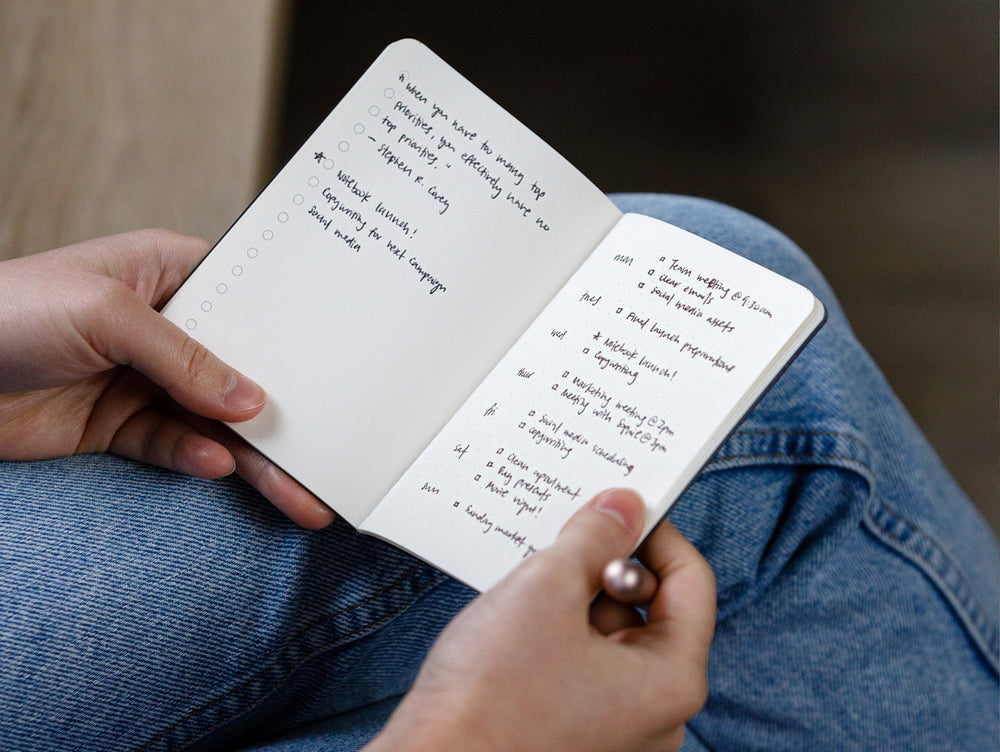 "When you have too many top
priorities, you effectively have no
top priorities."
— Stephen R. Covey
★ Notebook launch!
Copywriting for next campaign
Social media
mon □ Team meeting @ 9:30am
□ Clear emails
□ Social media assets
tues □ Final launch preparations
wed ★ Notebook launch!
□ Copywriting
thur □ Marketing meeting @ 2pm
□ Meeting with @ 3pm
fri □ Social media scheduling
□ Copywriting
sat □ Clean apartment
□ Buy presents
□ Movie night!
sun □ Sunday market